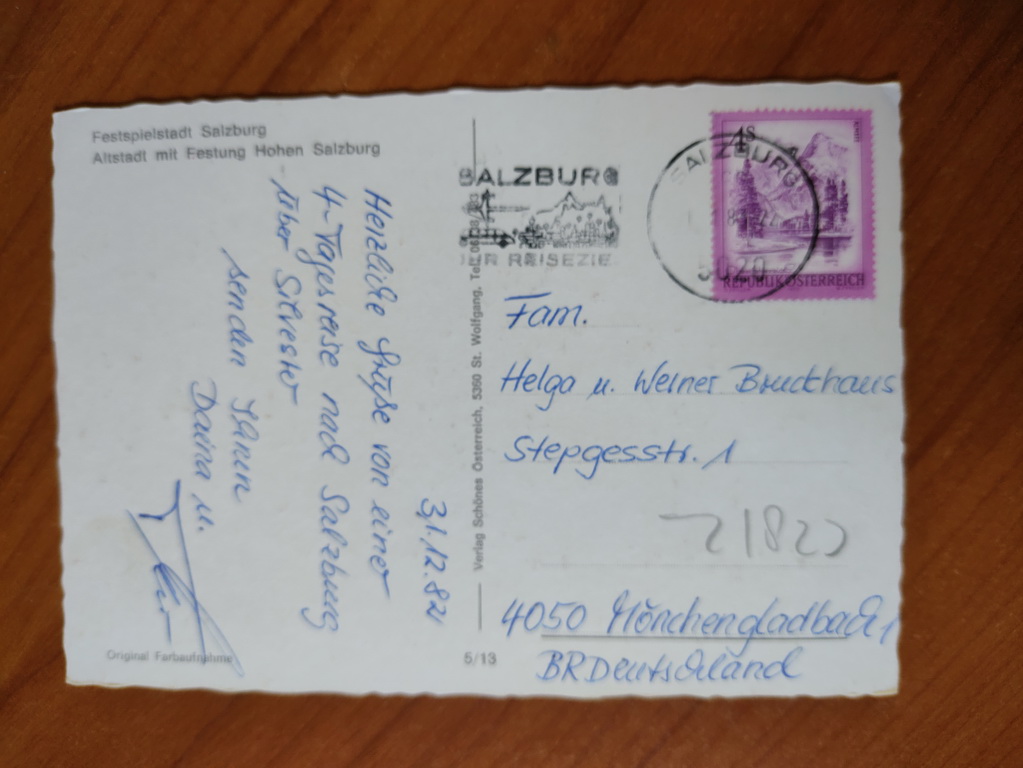 Festspielstadt Salzburg
Altstadt mit Festung Hohen Salzburg
31.12.82
Herzliche Grüße von einer
4-Tagesreise nach Salzburg
über Silvester
senden Ihnen
Daina u.
Original Farbaufnahme
Verlag Schönes Österreich, 5360 St. Wolfgang, Tel.
5/13
SALZBURG
IHR REISEZIEL
SALZBURG
5020
4S
REPUBLIK ÖSTERREICH
Fam.
Helga u. Werner Bruckhaus
Stepgesstr. 1
4050 Mönchengladbach 1
BRDeutschland